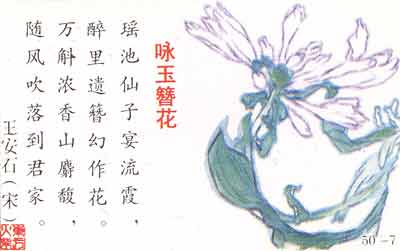 咏玉簪花
瑶池仙子宴流霞，
醉里遗簪幻作花。
万斛浓香山麝馥，
随风吹落到君家。
王安石（宋）
50-7